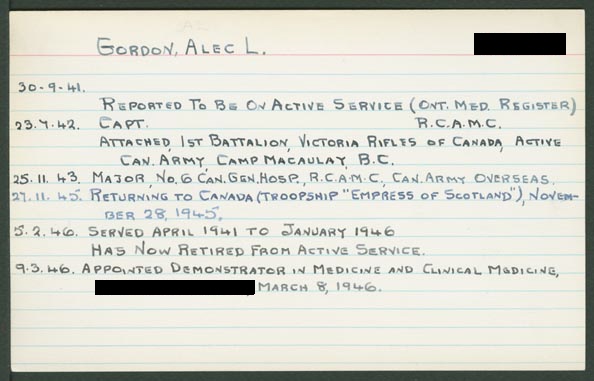 GORDON, ALEC L.
30-9-41.
REPORTED TO BE ON ACTIVE SERVICE (ONT. MED. REGISTER)
23.7.42. CAPT. R.C.A.M.C.
ATTACHED, 1ST BATTALION, VICTORIA RIFLES OF CANADA, ACTIVE
CAN. ARMY, CAMP MACAULAY, B.C.
25.11.43. MAJOR, NO. 6 CAN. GEN. HOSP., R.C.A.M.C., CAN. ARMY OVERSEAS.
27.11.45. RETURNING TO CANADA (TROOPSHIP "EMPRESS OF SCOTLAND"), NOVEM-
BER 28, 1945.
5.2.46. SERVED APRIL 1941 TO JANUARY 1946
HAS NOW RETIRED FROM ACTIVE SERVICE.
9.3.46. APPOINTED DEMONSTRATOR IN MEDICINE AND CLINICAL MEDICINE,
, MARCH 8, 1946.